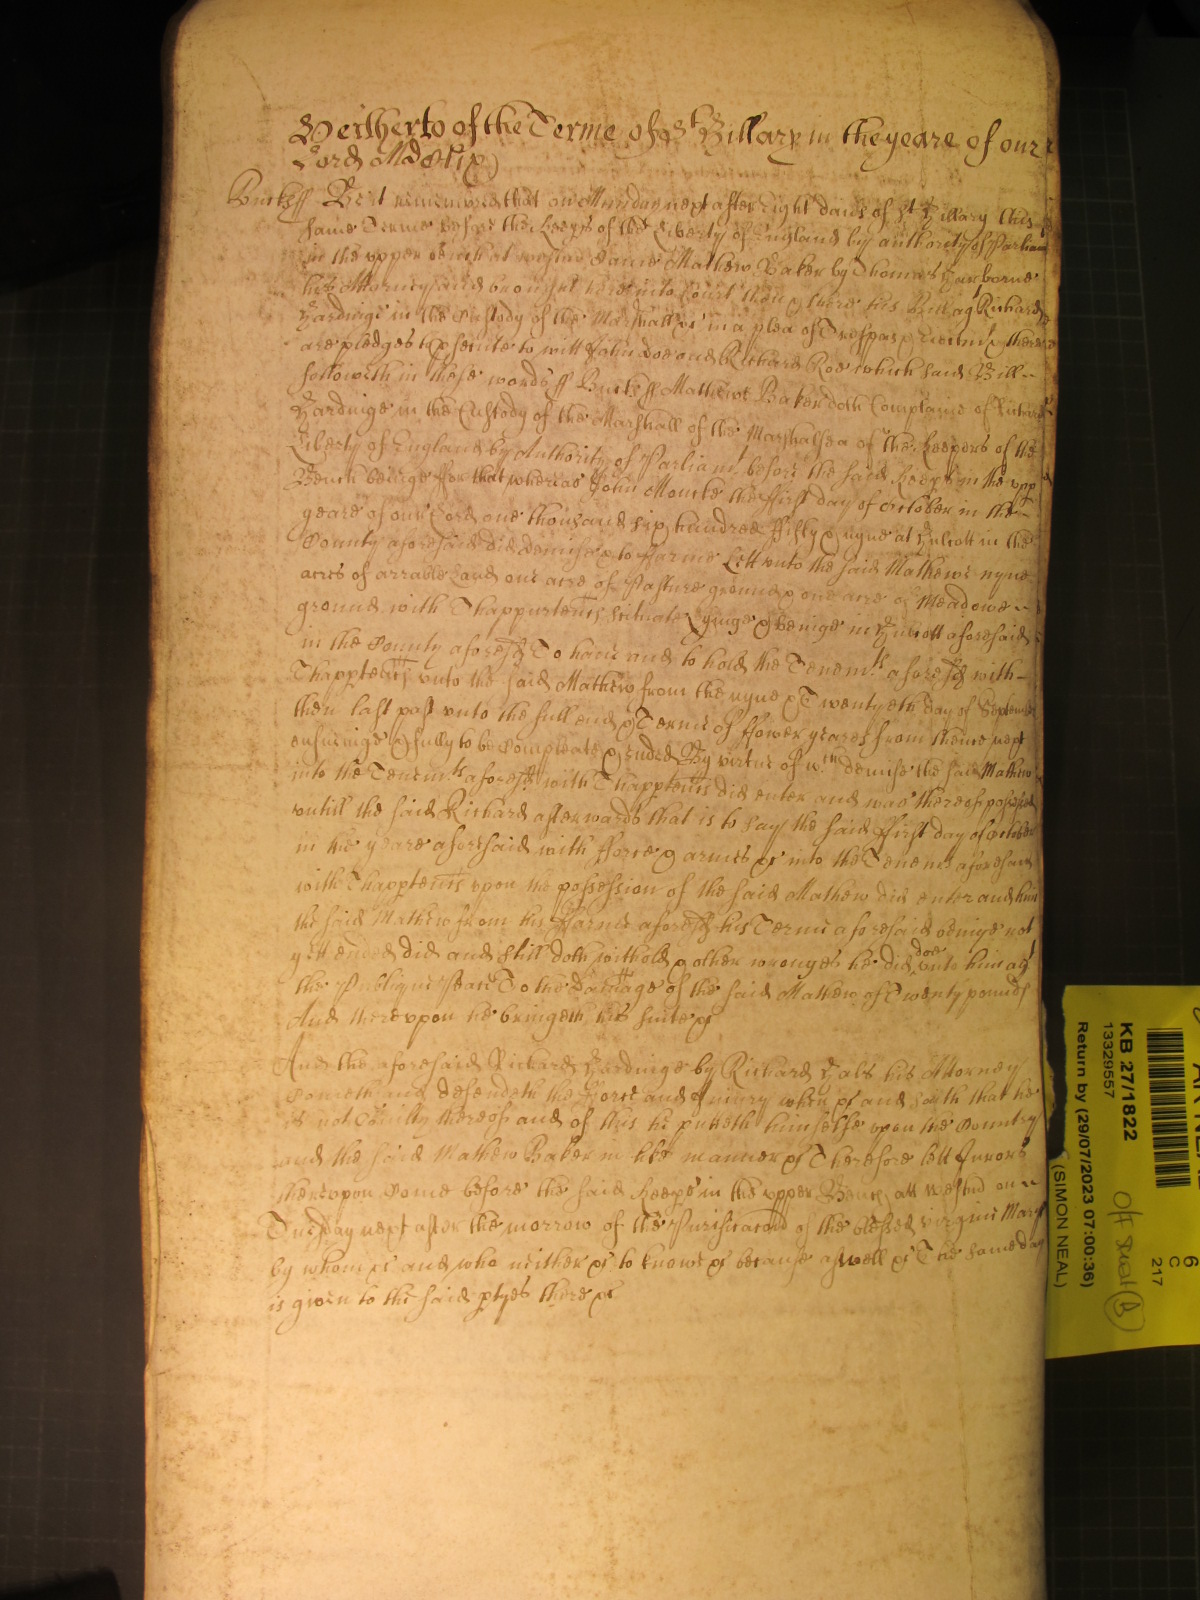 Heitherto of the Terme of St Hillary in the yeare of our
Lord MDCLix
Bucks ss Be it remembred that on Munday next after Eight daies of St Hillary this
same Terme before the Keeprs of the Liberty of England by authority of Parliam
in the upper bench at Westmr Came Mathew Baker by Thomas Harborne
his Attorney and brought here into Court then & there his Bill agt Richard
Hardinge in the Custody of the Marshall &c in a plea of Trespas & Eiectmt & there
are pledges to psecute to witt John Doe and Richard Roe which said Bill
followeth in these words ss Bucks ss Mathewe Baker doth Complaine of Richard
Hardinge in the Custody of the Marshall of the Marshalsea of the Keepers of the
Liberty of England by Authority of Parliamt before the said Keeprs in the upp
Bench beinge ffor that whereas John Moncke the ffirst day of October in the
yeare of our Lord one thousand six hundred ffifty & nyne at Hulcott in the
County aforesaid did demise & to ffarme Lett unto the said Mathewe nyne
acres of arrable Land one acre of Pasture ground & one acre of Meadowe
ground with Thappurtents scituate Lyinge & beinge in Hulcott aforesaid
in the County aforesd To have and to hold the Tenemts aforesd with
Thapptents unto the said Mathew from the nyne & Twentyeth day of September
then last past unto the full end & Terme of ffower yeares from thence next
ensueinge & fully to be Compleate & ended By virtue of wch demise the said Mathew
into the Tenemts aforesd with Thapptents did enter and was thereof possessed
untill the said Richard afterwards that is to say the said ffirst day of October
in the yeare aforesaid with fforce & armes &c into the Tenemts aforesaid
with Thapptents upon the possession of the said Mathew did enter and him
the said Mathew from his ffarme aforesd his Terme aforesaid beinge not
yett ended did and still doth withold & other wronges he did doe unto him agt
the Publique Peace To the Damage of the said Mathew of Twenty pounds
And thereupon he bringeth his suite &c
And the aforesaid Richard Hardinge by Richard Hals his Attorney
Cometh and defendeth the fforce and Iniury when &c and saith that he
is not Guilty thereof and of this he putteth himselfe upon the Country
and the said Mathew Baker in like manner &c Therefore lett Jurors
thereupon Come before the said Keeprs in the upper Bench att Westmr on
Tuesday next after the morrow of the Purificacon of the blessed virgin Mary
by whom &c and who neither &c to knowe &c because aswell &c The same day
is given to the said ptyes there &c
AR NEAL
KB 27/1822
13329557
Return by (29/07/2023 07:00:36)
(SIMON NEAL)
6
C
217